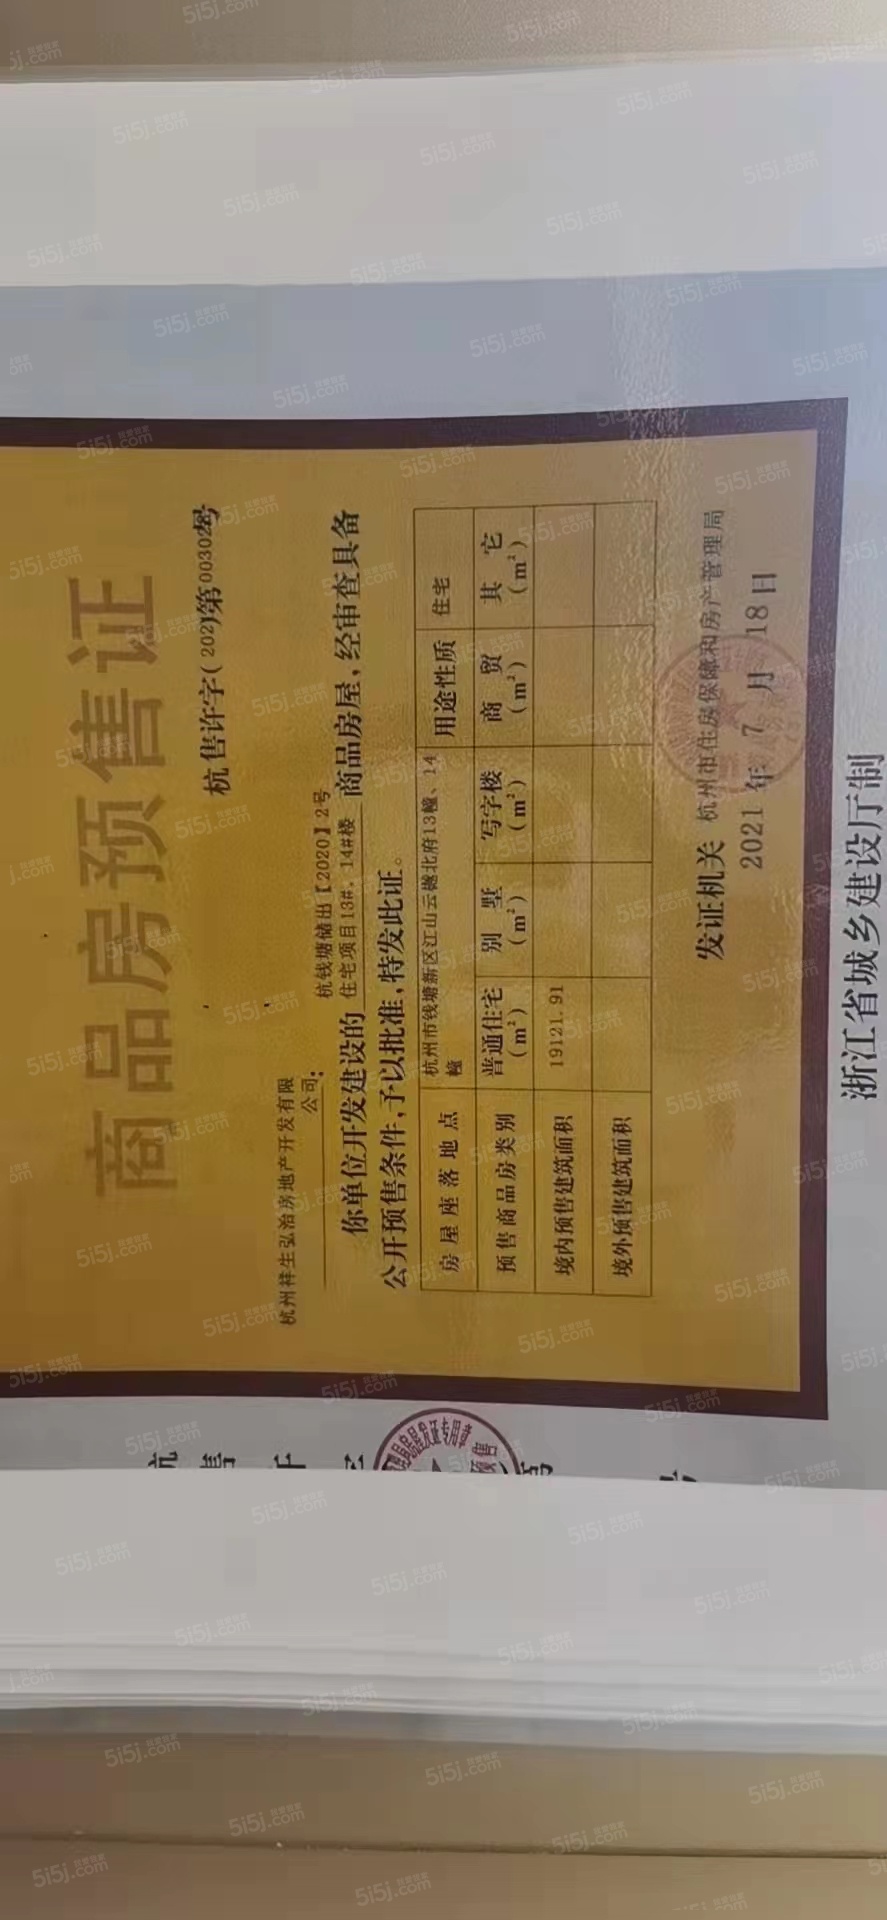 商品房预售证
杭售许字(2021)第003028号
杭州祥生弘治房地产开发有限
公司:
杭钱塘储出【2020】2号
你单位开发建设的住宅项目13#、14#楼商品房屋,经审查具备
公开预售条件,予以批准,特发此证。
房屋座落地点 杭州市钱塘新区江山云樾北府13幢、14幢 用途性质 住宅
预售商品房类别 普通住宅(m²) 别墅(m²) 写字楼(m²) 商贸(m²) 其它(m²)
境内预售建筑面积 19121.91
境外预售建筑面积
发证机关 杭州市住房保障和房产管理局
2021年7月18日
浙江省城乡建设厅制
5i5j.com